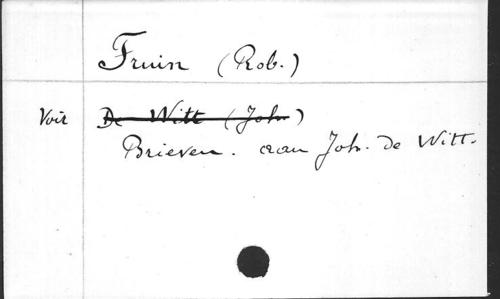 Fruin (Rob.)
Voir De Witt (Joh.)
Brieven. aan Joh. de Witt.